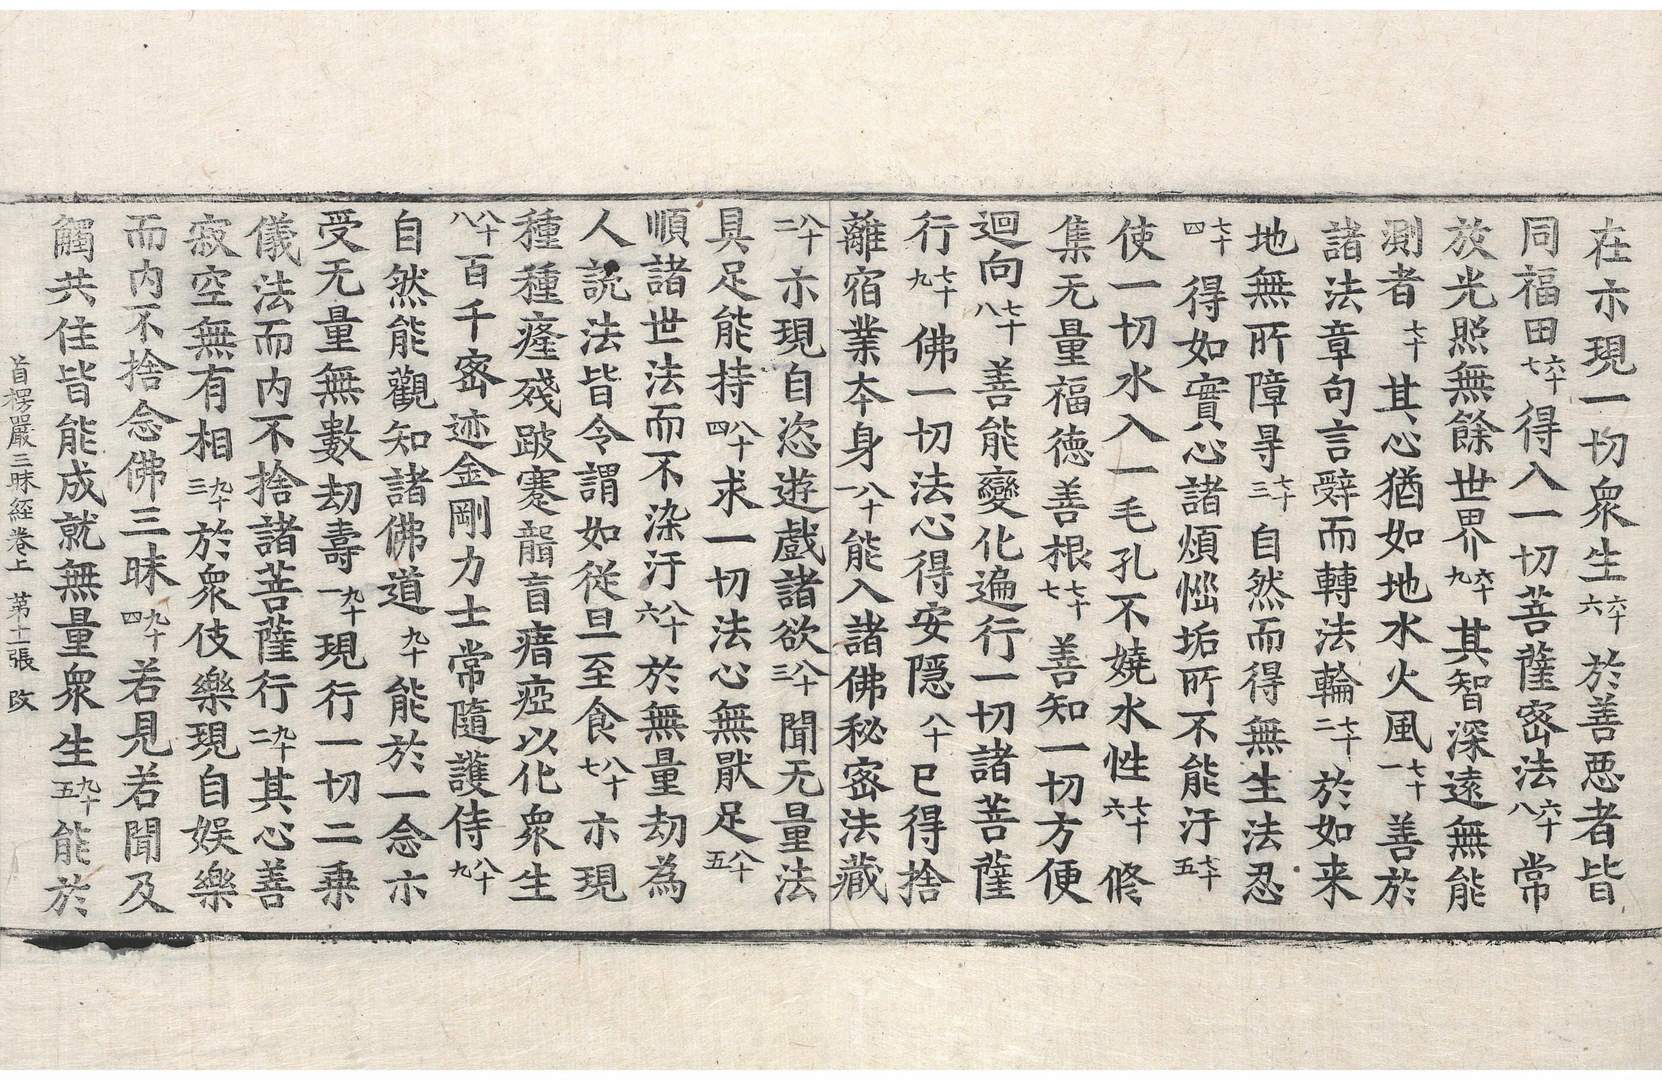 在示現一切衆生六十六於善惡者皆
同福田六十七得入一切菩薩密法六十八常
放光照無餘世界六十九其智深遠無能
測者七十其心猶如地水火風七十一善於
諸法章句言辭而轉法輪七十二於如来
地無所障㝵七十三自然而得無生法忍
七十四得如實心諸煩惱垢所不能汙七十五
使一切水入一毛孔不嬈水性七十六修
集无量福德善根七十七善知一切方便
迴向七十八善能變化遍行一切諸菩薩
行七十九佛一切法心得安隱八十已得捨
離宿業本身八十一能入諸佛秘密法藏
八十二示現自恣遊戲諸欲八十三聞无量法
具足能持八十四求一切法心無猒足八十五
順諸世法而不染汙八十六於無量劫為
人說法皆令謂如從旦至食八十七示現
種種癃殘跛蹇聾盲瘖瘂以化衆生
八十八百千密迹金剛力士常隨護侍八十九
自然能觀知諸佛道九十能於一念示
受无量無數劫壽九十一現行一切二乘
儀法而內不捨諸菩薩行九十二其心善
寂空無有相九十三於衆伎樂現自娛樂
而內不捨念佛三昧九十四若見若聞及
觸共住皆能成就無量衆生九十五能於
首楞嚴三昧經卷上 第十張 改